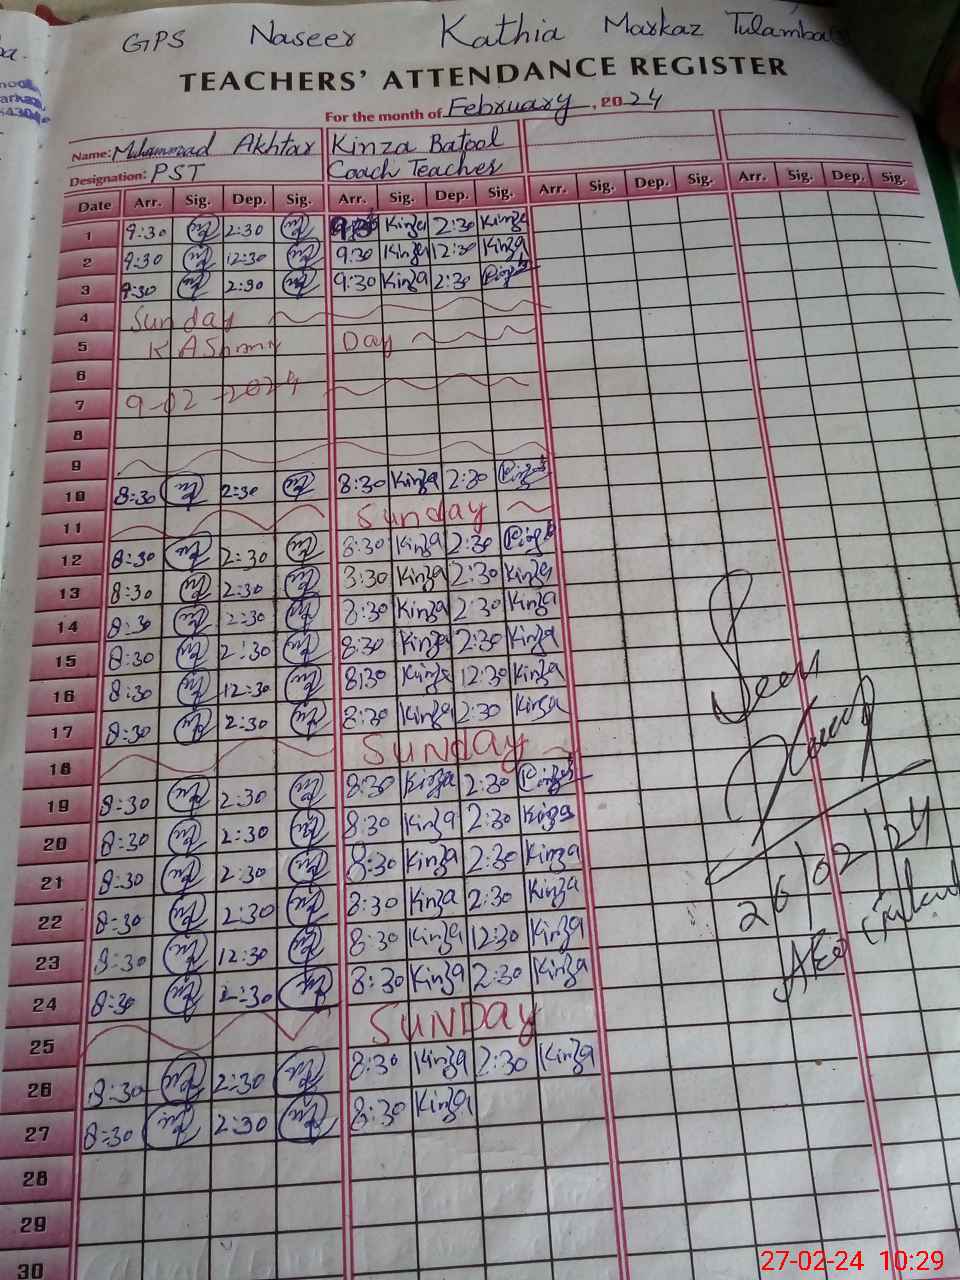 GPS Naseer Kathia Markaz Tulamba
TEACHERS' ATTENDANCE REGISTER
For the month of February, 2024
Name: Muhammad Akhtar Kinza Batool
Designation: PST Coach Teacher
Date Arr. Sig. Dep. Sig. Arr. Sig. Dep. Sig. Arr. Sig. Dep. Sig. Arr. Sig. Dep. Sig.
1 9:30 2:30 9:30 Kinza 2:30 Kinza
2 9:30 12:30 9:30 Kinza 12:30 Kinza
3 9:30 2:30 9:30 Kinza 2:30
4 Sunday
5 KAShmir Day
6
7 9-02-2024
8
9
10 8:30 2:30 8:30 Kinza 2:30
11 Sunday
12 8:30 2:30 8:30 Kinza 2:30
13 8:30 2:30 8:30 Kinza 2:30 Kinza
14 8:30 2:30 8:30 Kinza 2:30 Kinza
15 8:30 2:30 8:30 Kinza 2:30 Kinza
16 8:30 12:30 8:30 Kinza 12:30 Kinza
17 8:30 2:30 8:30 Kinza 2:30 Kinza
18 SUNDAY
19 8:30 2:30 8:30 Kinza 2:30
20 8:30 2:30 8:30 Kinza 2:30 Kinza
21 8:30 2:30 8:30 Kinza 2:30 Kinza
22 8:30 2:30 8:30 Kinza 2:30 Kinza
23 8:30 12:30 8:30 Kinza 12:30 Kinza
24 8:30 2:30 8:30 Kinza 2:30 Kinza
25 SUNDAY
26 8:30 2:30 8:30 Kinza 2:30 Kinza
27 8:30 2:30 8:30 Kinza
28
29
30
Seen
26/02/24
AEO
27-02-24 10:29